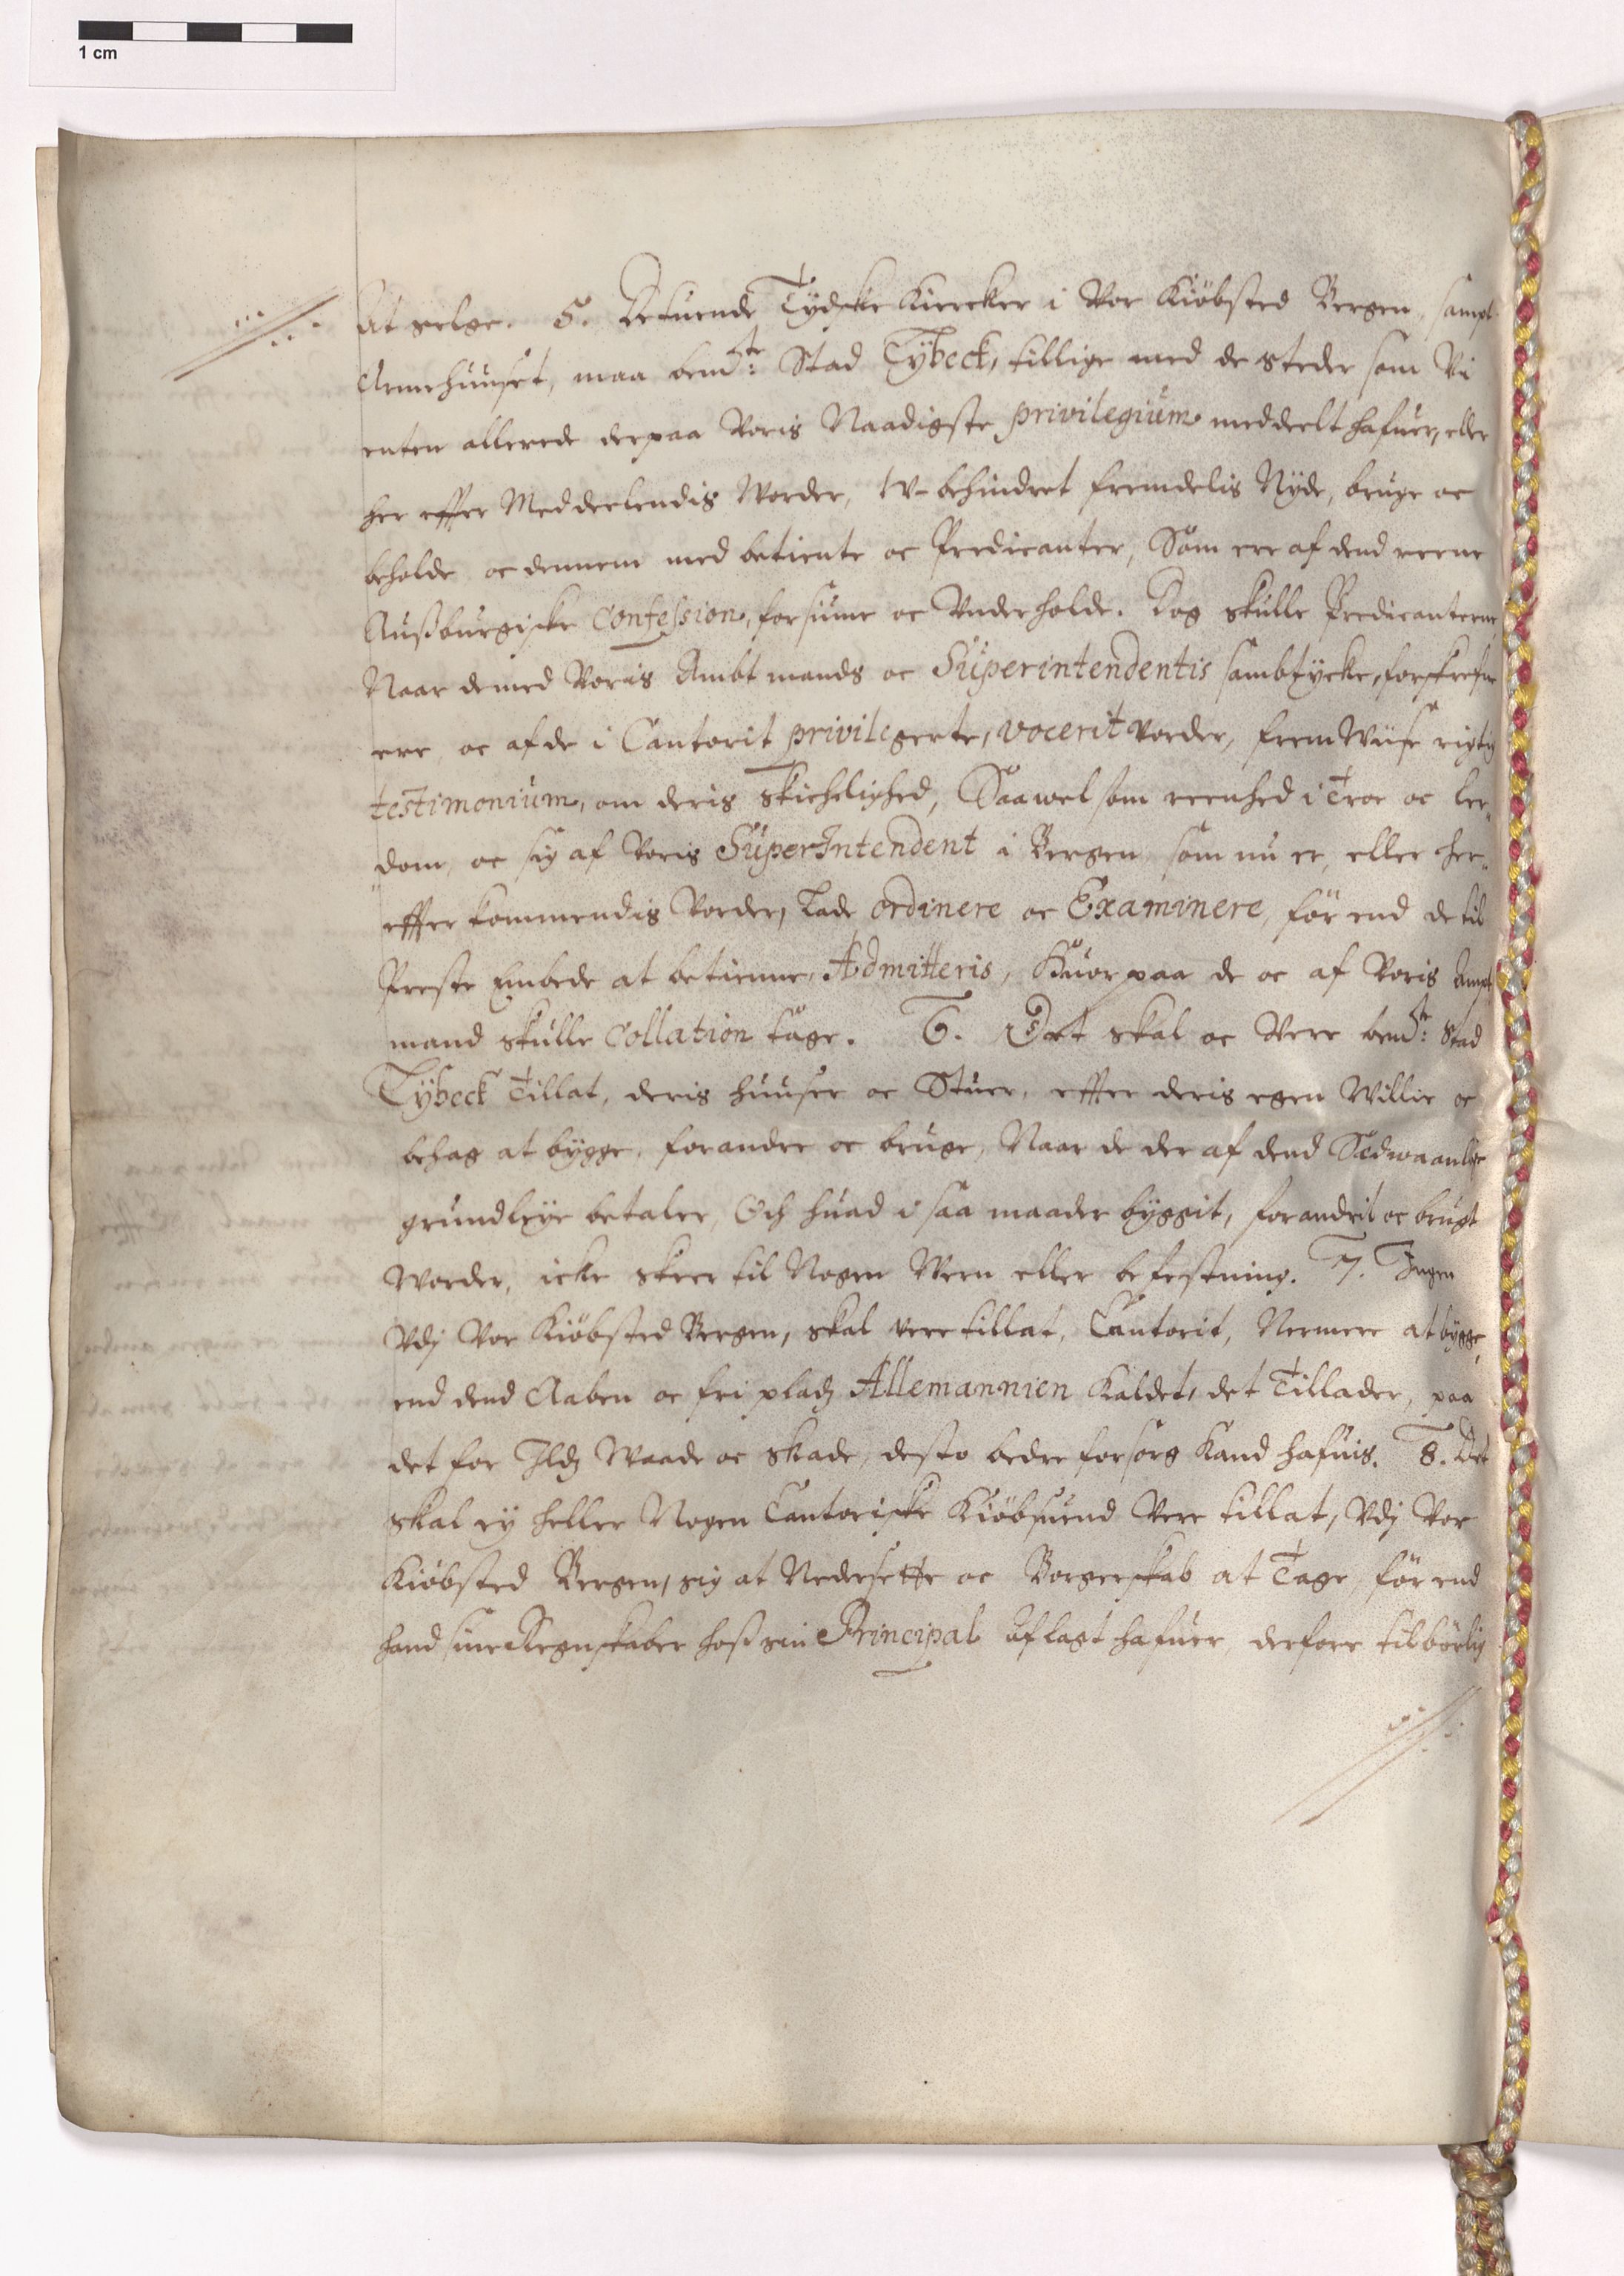 1 cm
At selge. 5. De tuende Tydske Kiercker i Vor Kiöbsted Bergen, sampt
Armehuuset, maa bemᵗᵉ: Stad Lÿbeck, tillige med de steder som Vi
enten allerede derpaa Voris Naadigste privilegium meddeelt hafuer, eller
her effter Meddeelendis Worder, W-behindret fremdelis Nyde, bruge oc
beholde oc dennem med betiente oc Predicanter, Som ere af dend reene
Außburgiske Confession, forsiune oc Vnderholde. Dog skulle Predicanterne,
Naar de med Voris Ambtmands oc Superintendentis sambtycke, forskrefne
ere, oc af de i Cantorit privilegerte, vocerit Vorder, frem Wiise rigtig
testimonium, om deris Skichelighed, Saawel som reenhed i Troe oc ler-
dom, oc sig af Voris SuperIntendent i Bergen, som nu er, eller her-
effter kommendis Vorder, Lade ordinere oc Examinere, för end de til
Preste Embede at betienne, Admitteris, Huor paa de oc af Voris Ampt
mand skulle Collation tage. 6. Det skal oc Vere bemᵗᵉ: Stad
Lÿbeck Tillat, deris huuser oc Stuer, effter deris egen Willie oc
behag at bygge, forandre oc bruge, Naar de der af dend Sedwaanlige
grundleye betaler, Och huad i saa maader byggit, forandrit oc brugt
Worder, icke skeer til Nogen Wern eller befestning. 7. Ingen
Vdj Vor Kiöbsted Bergen, skal vere tillat, Cantorit, Nermere at bygge,
end dend Aaben oc fri pladz Allemannien Kaldet, det Tillader, paa
det for Ildz Waade oc skade, desto bedre forsorg Kand hafuis. 8. Det
skal ey heller Nogen Cantoriske Kiöbsuend Vere tillat, Vdj Vor
Kiöbsted Bergen, sig at Nedersette oc Borgerskab at Tage, för end
hand sine Regnskaber hoß sin Principal Aflagt hafuer, derfore tilbörlig